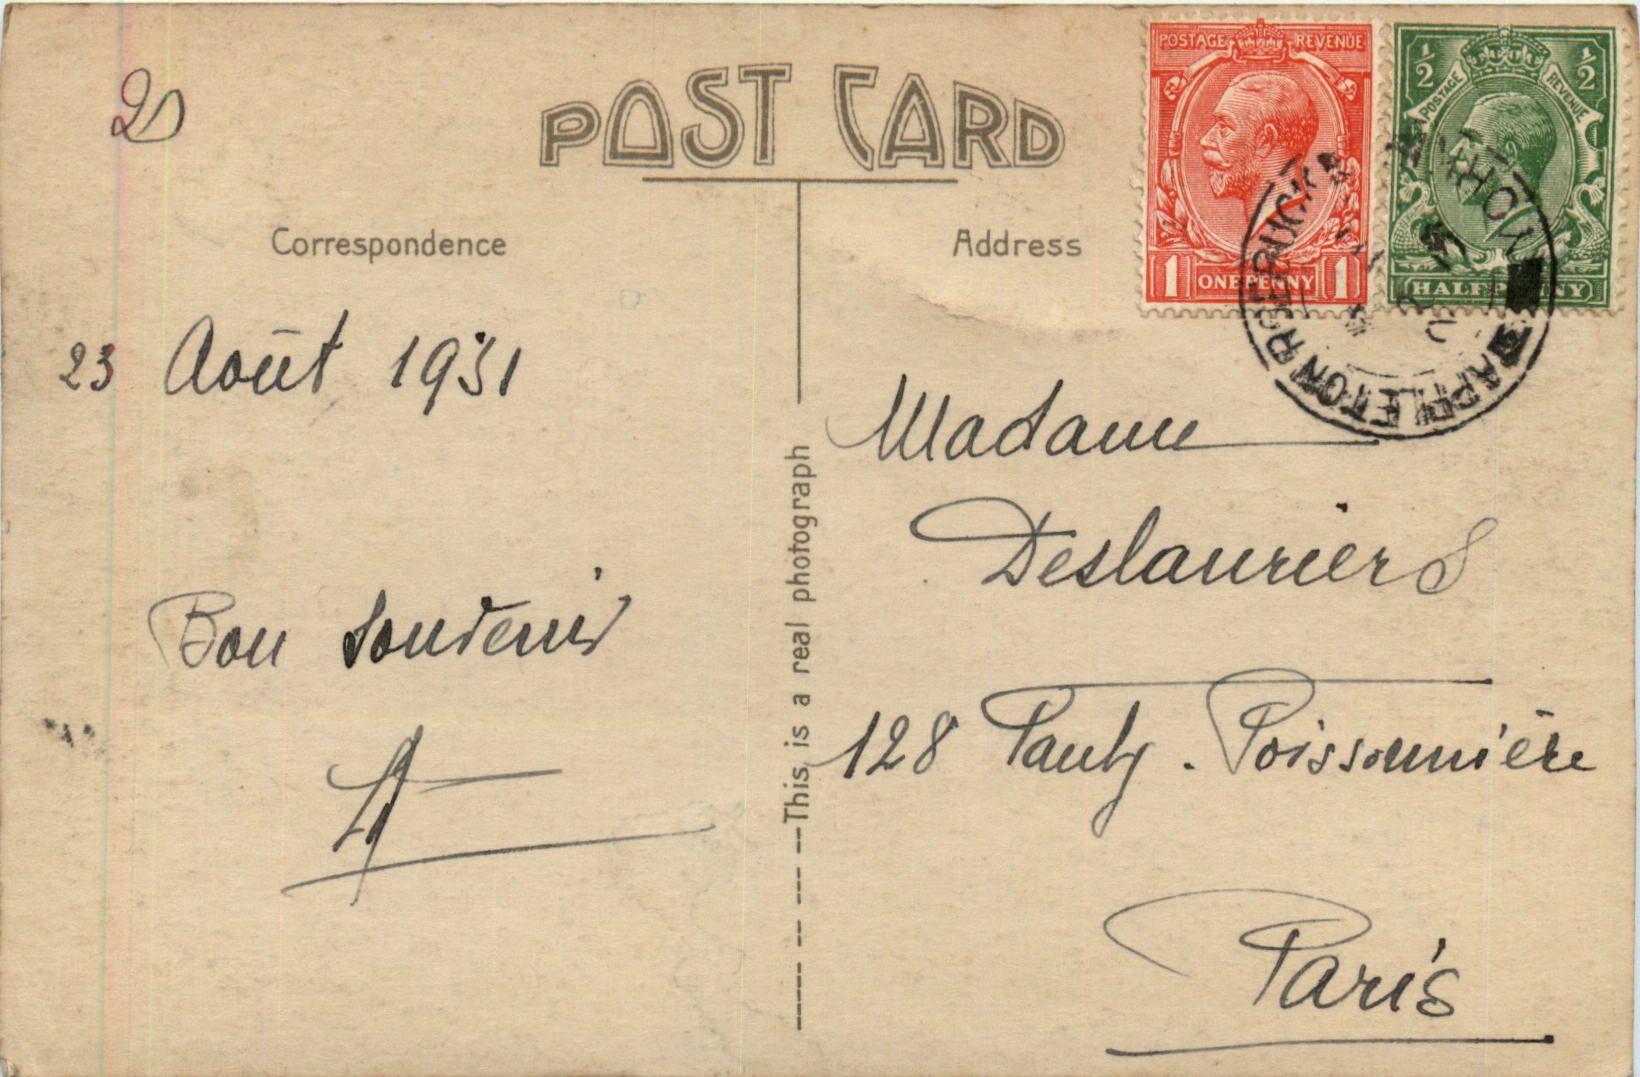 20
POST CARD
Correspondence
Address
POSTAGE REVENUE
1 ONE PENNY 1
½ POSTAGE REVENUE ½
HALFPENNY
APPLETON ROEBUCK
23 Août 1931
Bon souvenir
Madame
Deslauriers
128 Fauby. Poissonnière
Paris
This is a real photograph